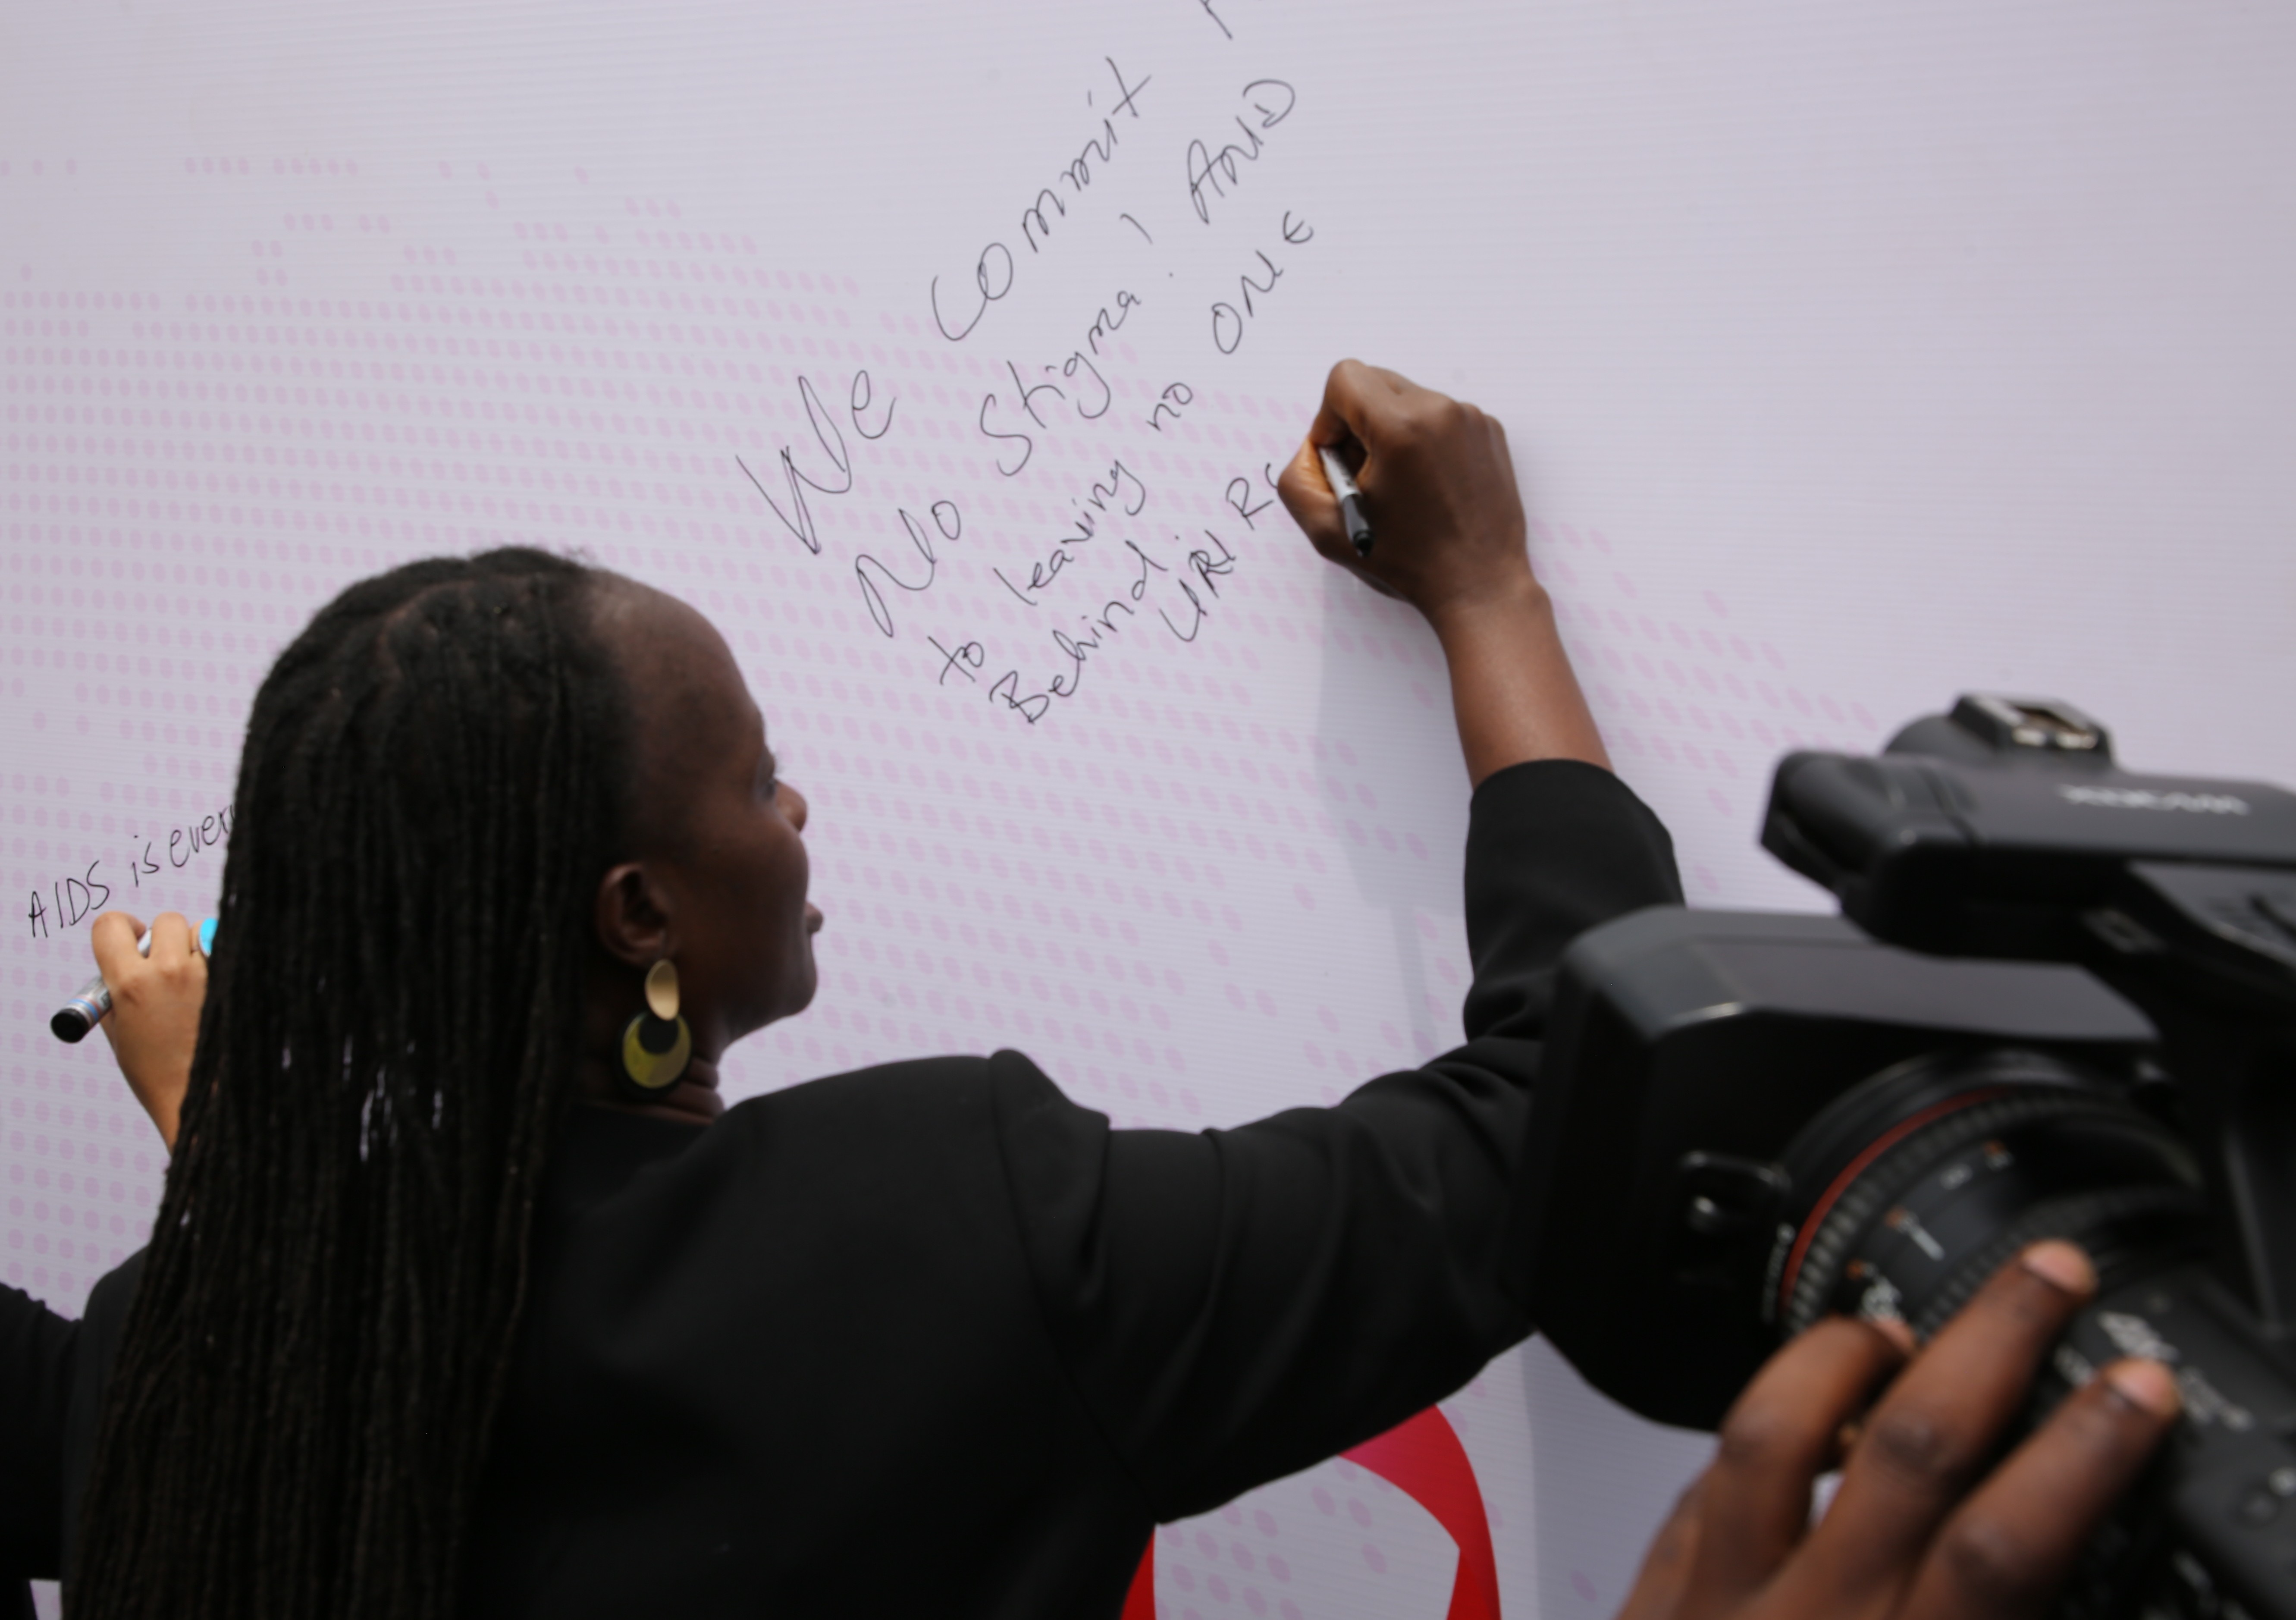 We commit
No Stigma, AND
to leaving no ONE
Behind.
AIDS is every
XDCAM